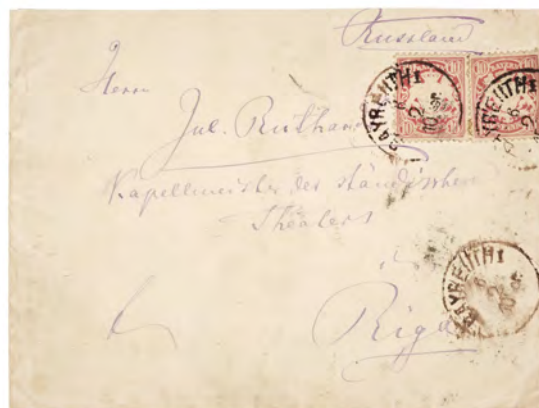 Russland
Herrn
Jul. Ruthardt
Kapellmeister des ständischen
Theaters
in
Riga
BAYREUTH I
BAYREUTH I
BAYREUTH I